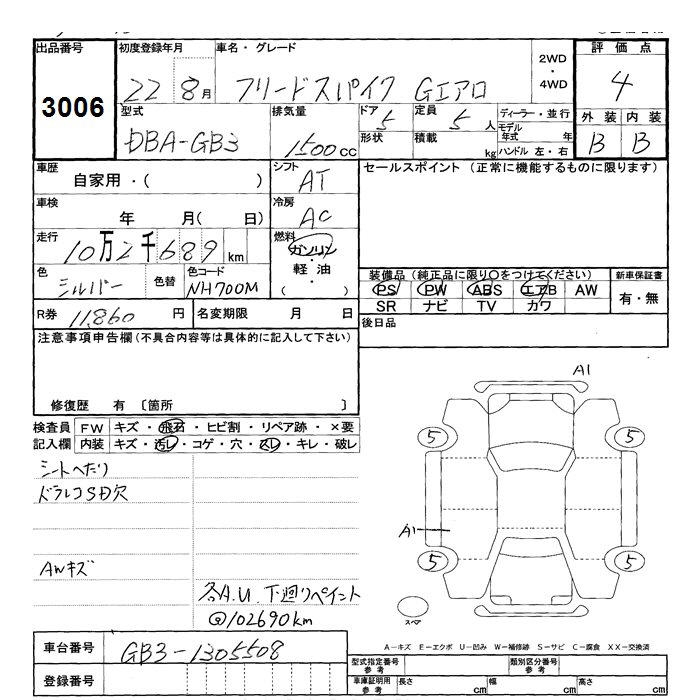 出品番号 初度登録年月 車名・グレード 2WD・4WD 評価点
3006 22 8月 フリードスパイク Gエアロ 4
型式 排気量 ドア 定員 ディーラー・並行 外装 内装
DBA-GB3 1500cc 5 5人 モデル年式 年 B B
形状 積載 kg ハンドル 左・右
車歴 シフト セールスポイント(正常に機能するものに限ります)
自家用・( ) AT
車検 冷房
年 月( 日) AC
走行 燃料
10万2千689km ガソリン・軽油・( )
色 色替 色コード 装備品(純正品に限り○をつけてください) 新車保証書
シルバー NH700M PS PW ABS エアB AW 有・無
SR ナビ TV カワ
R券 11,860円 名変期限 月 日 後日品
注意事項申告欄(不具合内容等は具体的に記入して下さい)
修復歴 有 〔箇所 〕
検査員 FW キズ・飛石・ヒビ割・リペア跡・×要
記入欄 内装 キズ・汚レ・コゲ・穴・スレ・キレ・破レ
シートへたり
ドラレコSD欠
AWキズ
各A.U 下廻りペイント
@102690km
A1
5 5
A1
5 5
スペア
A-キズ E-エクボ U-凹み W-補修跡 S-サビ C-腐食 XX-交換済
車台番号 GB3-1305508
登録番号
型式指定番号 参考 類別区分番号 参考
車庫証明用 参考 長さ cm 幅 cm 高さ cm